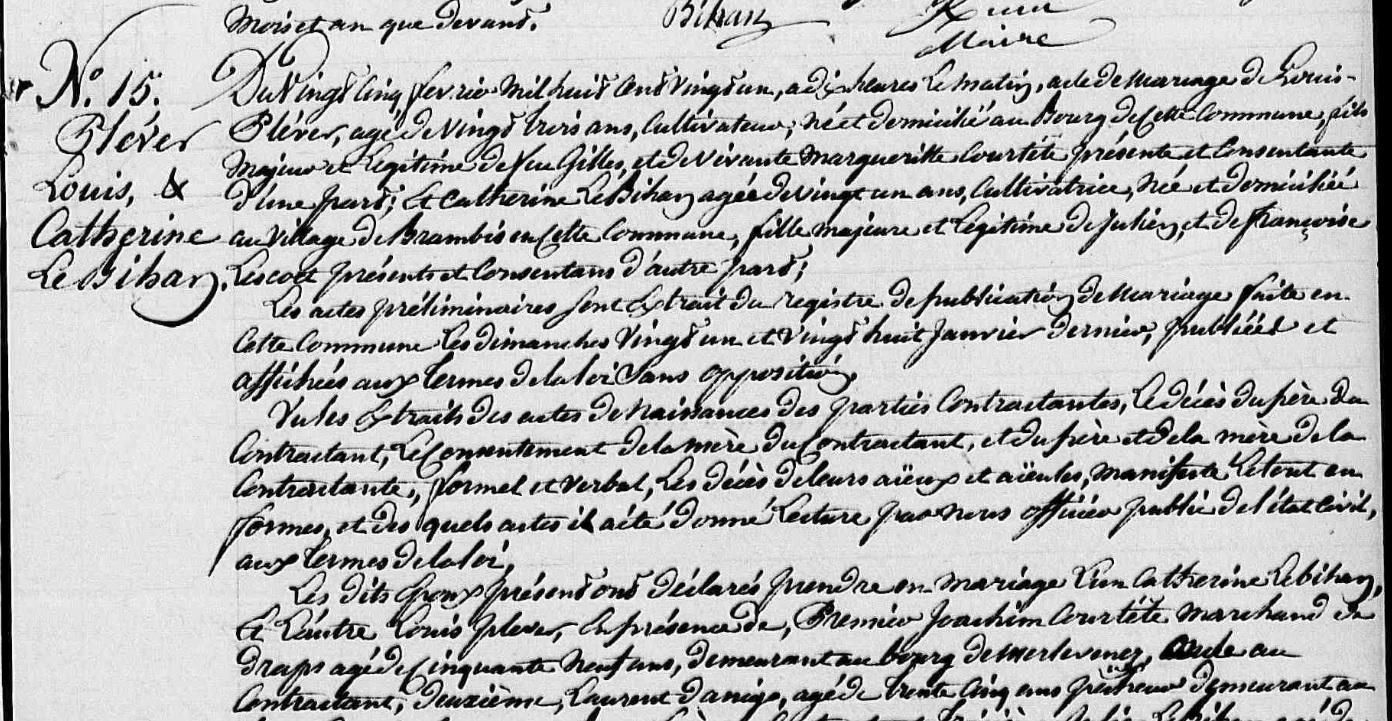 Mois et an que devant.
Bihan
Maire
N.º 15.
Pléver
Louis, &
Catherine
Le Bihan.
Du Vingt Cinq fevrier Mil huit Cent Vingt un, a dix heures Le matin, acte de Mariage de Louis
Pléver, agé de Vingt trois ans, Cultivateur, Né et domicilié au Bourg de Cette Commune, fils
Majeur et Legitime de feu Gilles, et de Vivante Margueritte Courtête présente et Consentante
d'une part; Et Catherine Le Bihan agée de vingt un ans, Cultivatrice, Née et domiciliée
au Village de Brambis en Cette Commune, fille majeure et Legitime de Julien, et de françoise
Lescoet présents et Consentans d'autre part;
Les actes préliminaires sont Extrait du registre de publication de Mariage faite en
Cette Commune Les dimanches Vingt un et Vingt huit Janvier dernier, publiées et
affichées aux termes de la loi Sans opposition,
Vu les Extraits des actes de Naissances des parties Contractantes, Le décès du père du
Contractant, Le Consentement de la mère du Contractant, et du père et de la mère de la
Contractante, formel et Verbal, Les décès de leurs aïeux et aïeules, manifeste Le tout en
formes, et des quels actes il a été donné Lecture par Nous officier public de l'état Civil,
aux termes de la loi,
Les dits Epoux présent ont déclarés prendre en mariage L'un Catherine Le bihan,
Et L'autre Louis plever, En présence de, Premier Joachim Courtête Marchand de
draps agé de Cinquante Neuf ans, demeurant au bourg de Merlevenez, oncle au
Contractant, deuxième, Laurent danigo, agé de trente Cinq ans demeurant au